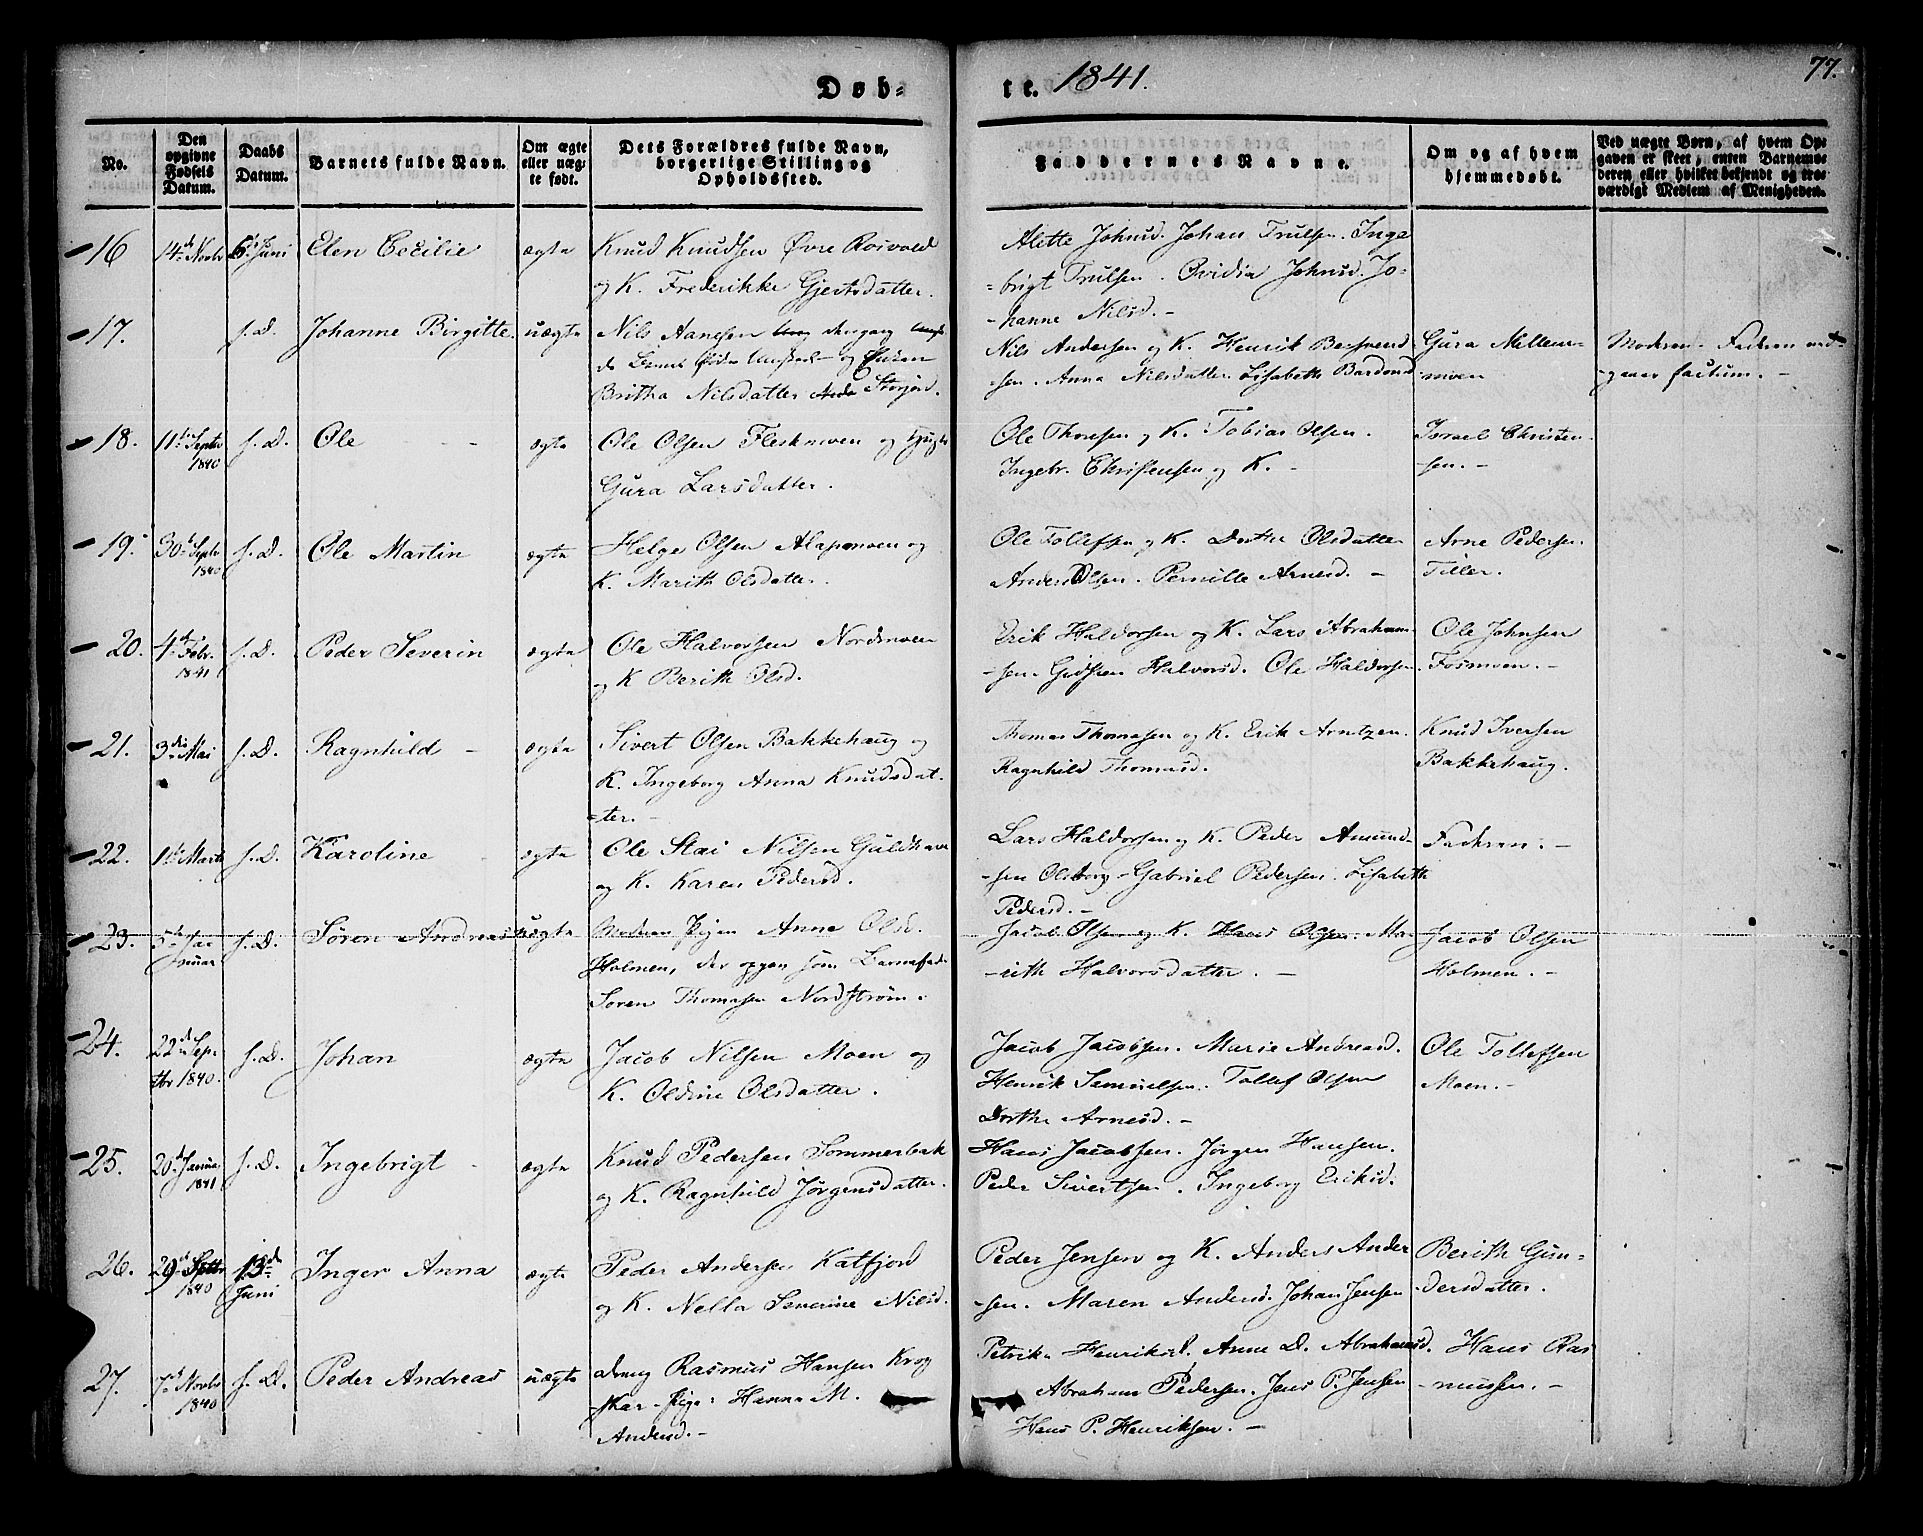 Døb- te. 1841. 77.
No.
Den opgivne Fødsels Datum.
Daabs Datum.
Barnets fulde Navn.
Om ægte eller uægte født.
Dets Forældres fulde Navn, borgerlige Stilling og Opholdssted.
Faddernes Navne.
Om og af hvem hjemmedøbt.
Ved uægte Børn, af hvem Opgaven er skeet, enten Barnemoderen eller hvilket bekjendt og troværdigt Medlem af Menigheden.
16 14de Novbr 6te Juni Elen Cecilie ægte Knud Knudsen Øvre Rosvold
og K. Frederikke Gjertsdatter.
Alette Johnsd. Johan Trulsen. Inge
=brigt Trulsen. Ovidia Johnsd. Jo-
-hanne Nilsd. -
17. s. D. Johanne Birgitte. uægte Nils Aanesen
Britha Nilsdatter Storjord.
Nils Andersen og K. Henrik
-sen. Anna Nilsdatter. Lisabeth Bardound
Gura Mellem-
moen
Moderen. Faderen ved-
-gaaer factum. -
18. 11te Septbr 1840 s. D. Ole ægte Ole Olsen Fleskmoen og
Gura Larsdatter.
Ole Thomsen og K. Tobias Olsen.
Ingebr. Christensen og K. -
Israel Christen-
sen. -
19. 30te Septbr 1840 s. D. Ole Martin ægte Helge Olsen Alapmoen og
K. Marith Olsdatter.
Ole Tollefsen og K. Dorthe Olsdatter
Anders Olsen. Pernille Arnesd. -
Arne Pedersen
Tiller.
20. 4de Febr. 1841 s. D. Peder Severin ægte Ole Halvorsen Nordmoen
og K Berith Olsd.
Erik Haldorsen og K. Lars Abraham-
-sen. Gidsken Halvorsd. Ole Haldorsen
Ole Johnsen
Fosmoen. -
21. 3die Mai s. D. Ragnhild - ægte Sivert Olsen Bakkehaug og
K. Ingeborg Anna Knudsdat-
=ter. -
Thomas Thomasen og K. Erik Arntzen.
Ragnhild Thomasd.
Knud Iversen
Bakkehaug.
22. 11te Marts s. D. Karoline ægte Ole Stai Nilsen Guldhav
og K. Karen Pedersd.
Lars Haldorsen og K. Peder Amund-
-sen Olsborg - Gabriel Pedersen. Lisabeth
Pedersd. -
Faderen. -
23. 5te Januar s. D. Søren Andreas uægte Moderen Pigen Anne Olsd.
Holmen, der opgav som Barnefader
Søren Thomasen Nordstrøm.
Jacob Olsen og K. Hans Olsen. Ma-
-rith Halvorsdatter. -
Jacob Olsen
Holmen. -
24. 22de Septbr 1840. s. D. Johan ægte Jacob Nilsen Moen og
K. Oldine Olsdatter.
Jacob Jacobsen. Marie Andreasd.
Henrik Samuelsen. Tollef Olsen
Dorthe Arnesd. -
Ole Tollefsen
Moen. -
25. 20de Janua 1841 s. D. Ingebrigt - ægte Knud Pedersen Sommerbak
og K. Ragnhild Jørgensdatter.
Hans Jacobsen. Jørgen Hansen.
Peder Sivertsen. Ingeborg Eriksd.
26. 29de Septbr 1840 13de Juni Inger Anna ægte Peder Andersen Katfjord
og K. Nella Severine Nilsd.
Peder Jensen og K. Anders Ander
-sen. Maren Andersd. Johan Jensen
Berith Gun-
-dersdatter.
27. 7de Novbr 1840 s. D. Peder Andreas uægte dreng Rasmus Hansen Krog
Pige: Hanna M.
Andersd. -
Petrike Henriksd. Anne D. Abrahamsd.
Abraham Pedersen. Jens P. Jensen
Hans P. Henriksen. -
Hans Ras
-mussen. -